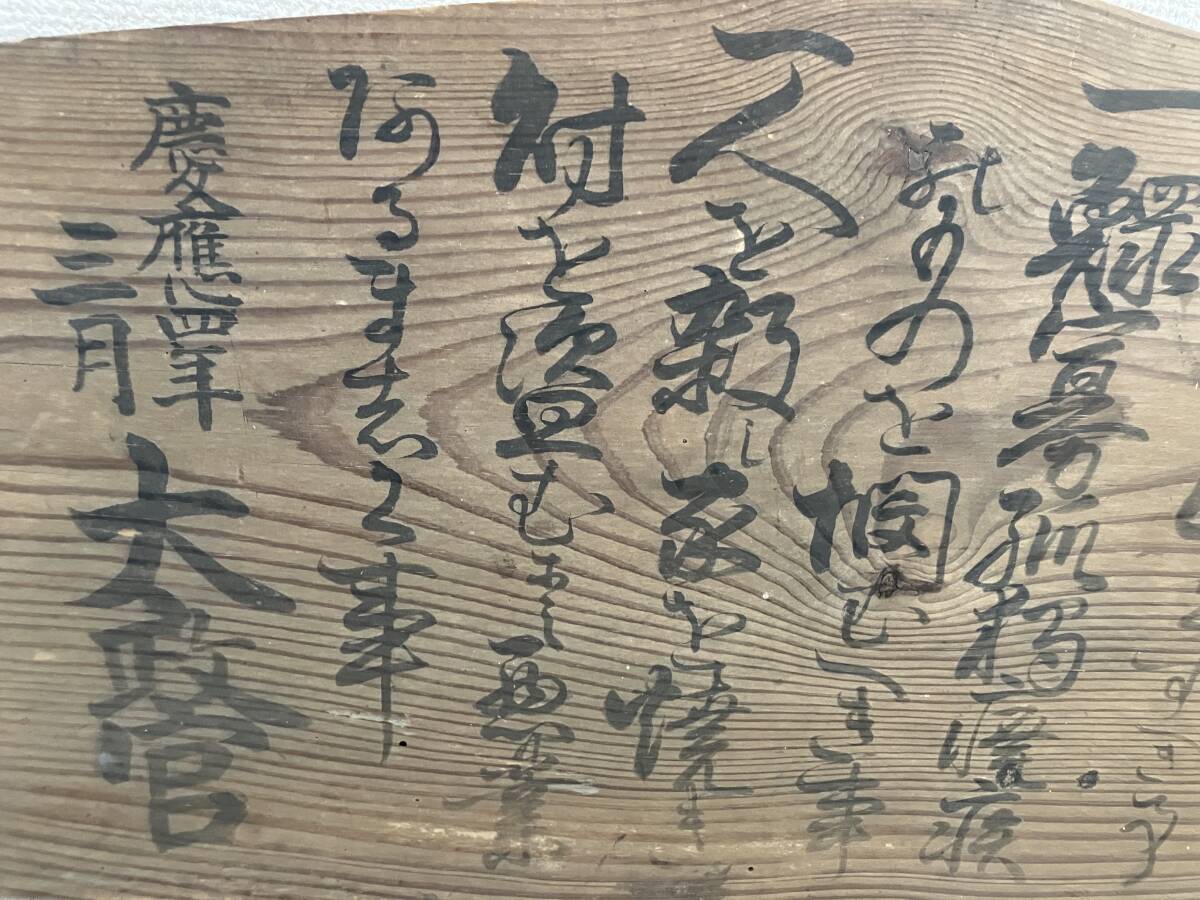 一 鰥寡孤獨癈疾
のものを憫むへき事
一人を殺し家を焼き
財を盗む等の悪業
あるましく事
慶應四年
三月
太政官